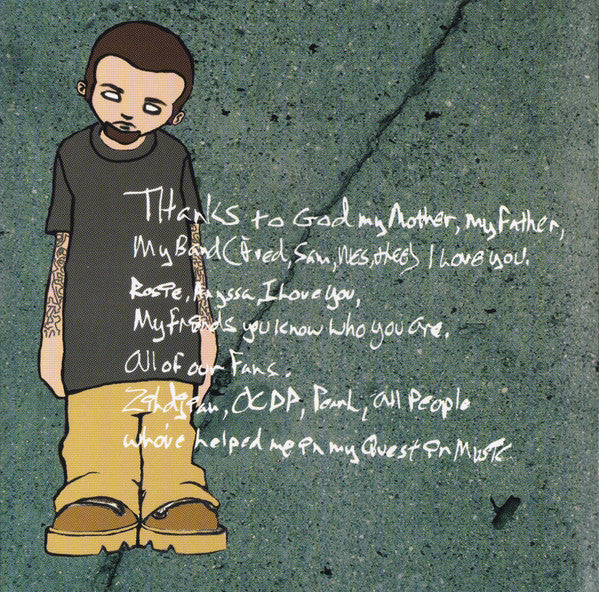 Thanks to God my Mother, my Father,
My Band (Fred, Sam, Wes, Lethal) I Love you.
Rosie, Alyssa, I Love you,
My friends you know who you are.
all of our Fans.
Zildjian, OCDP, Pearl, all People
who've helped me in my Quest in Music